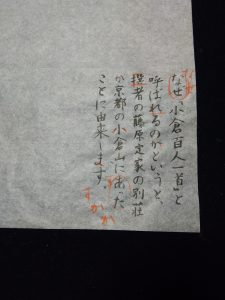 なぜ「小倉百人一首」と
呼ばれるのかというと、
撰者の藤原定家の別荘
が京都の小倉山に出った
ことに由来します。